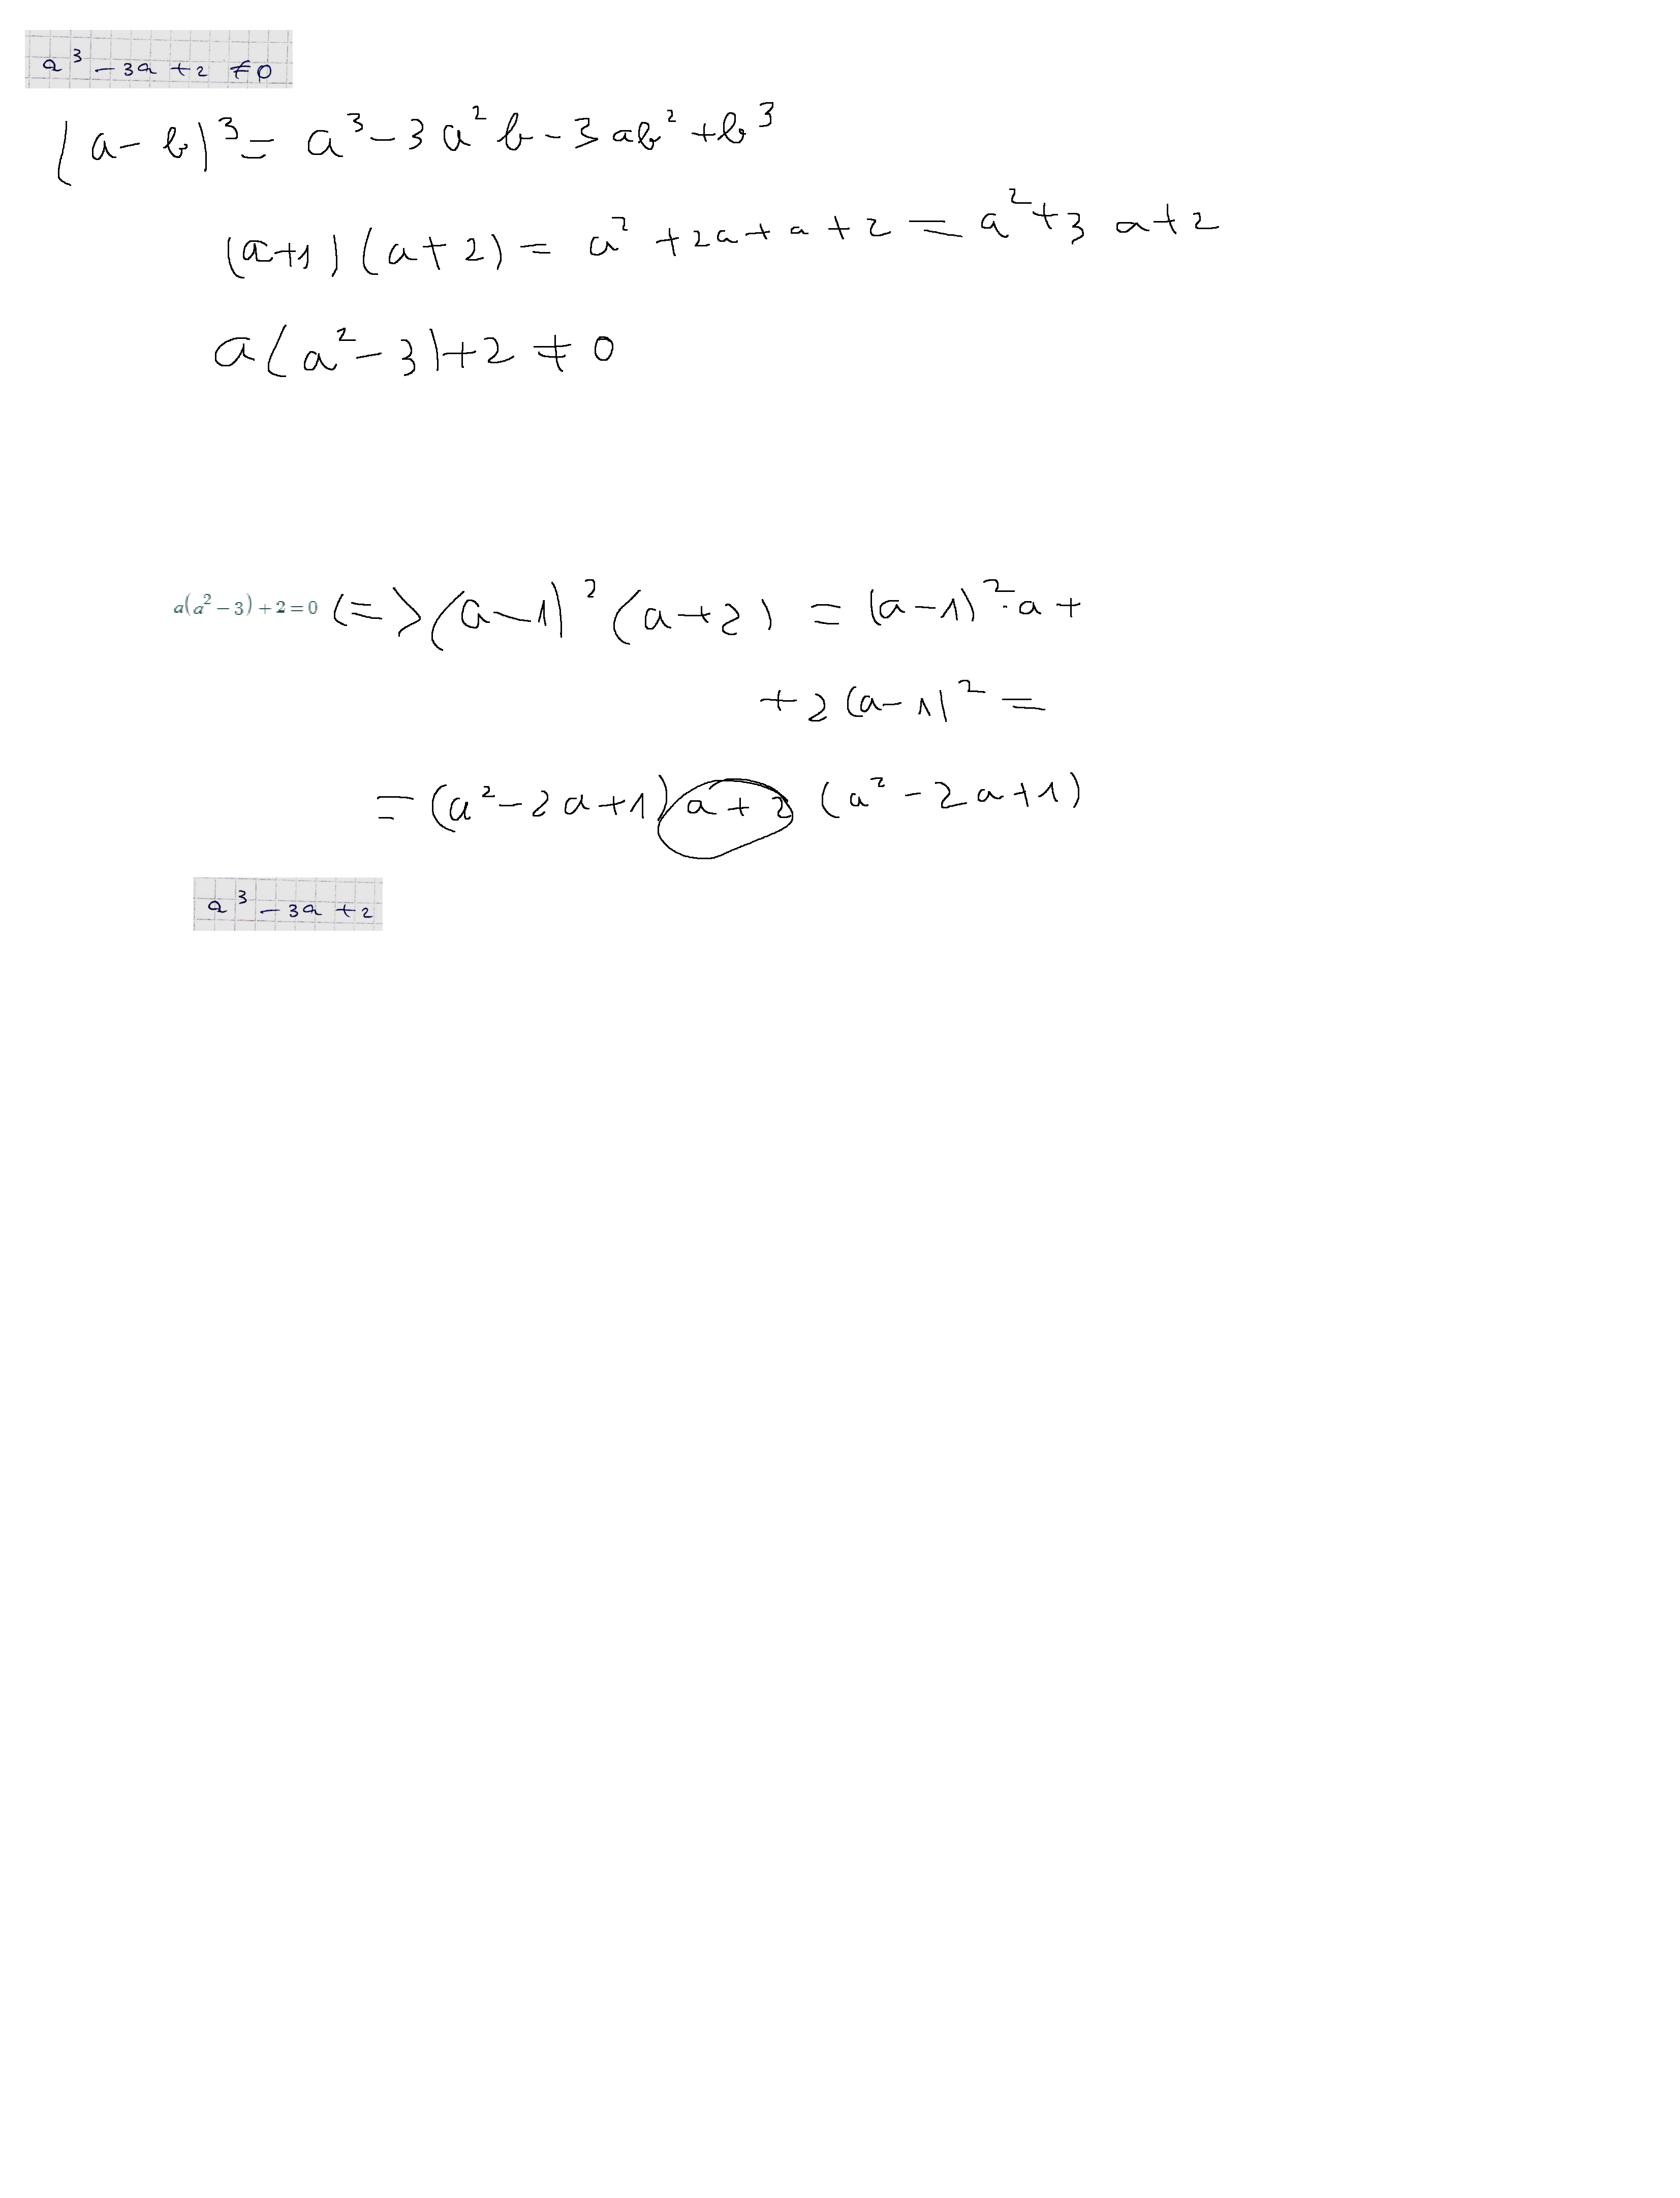 a³ - 3a + 2 ≠ 0
(a - b)³ = a³ - 3a²b - 3ab² + b³
(a+1)(a+2) = a² + 2a + a + 2 = a² + 3a + 2
a(a² - 3) + 2 ≠ 0
a(a² - 3) + 2 = 0 <=> (a-1)² (a+2) = (a-1)²·a +
+ 2(a-1)² =
= (a² - 2a + 1) a + 2 (a² - 2a + 1)
a³ - 3a + 2